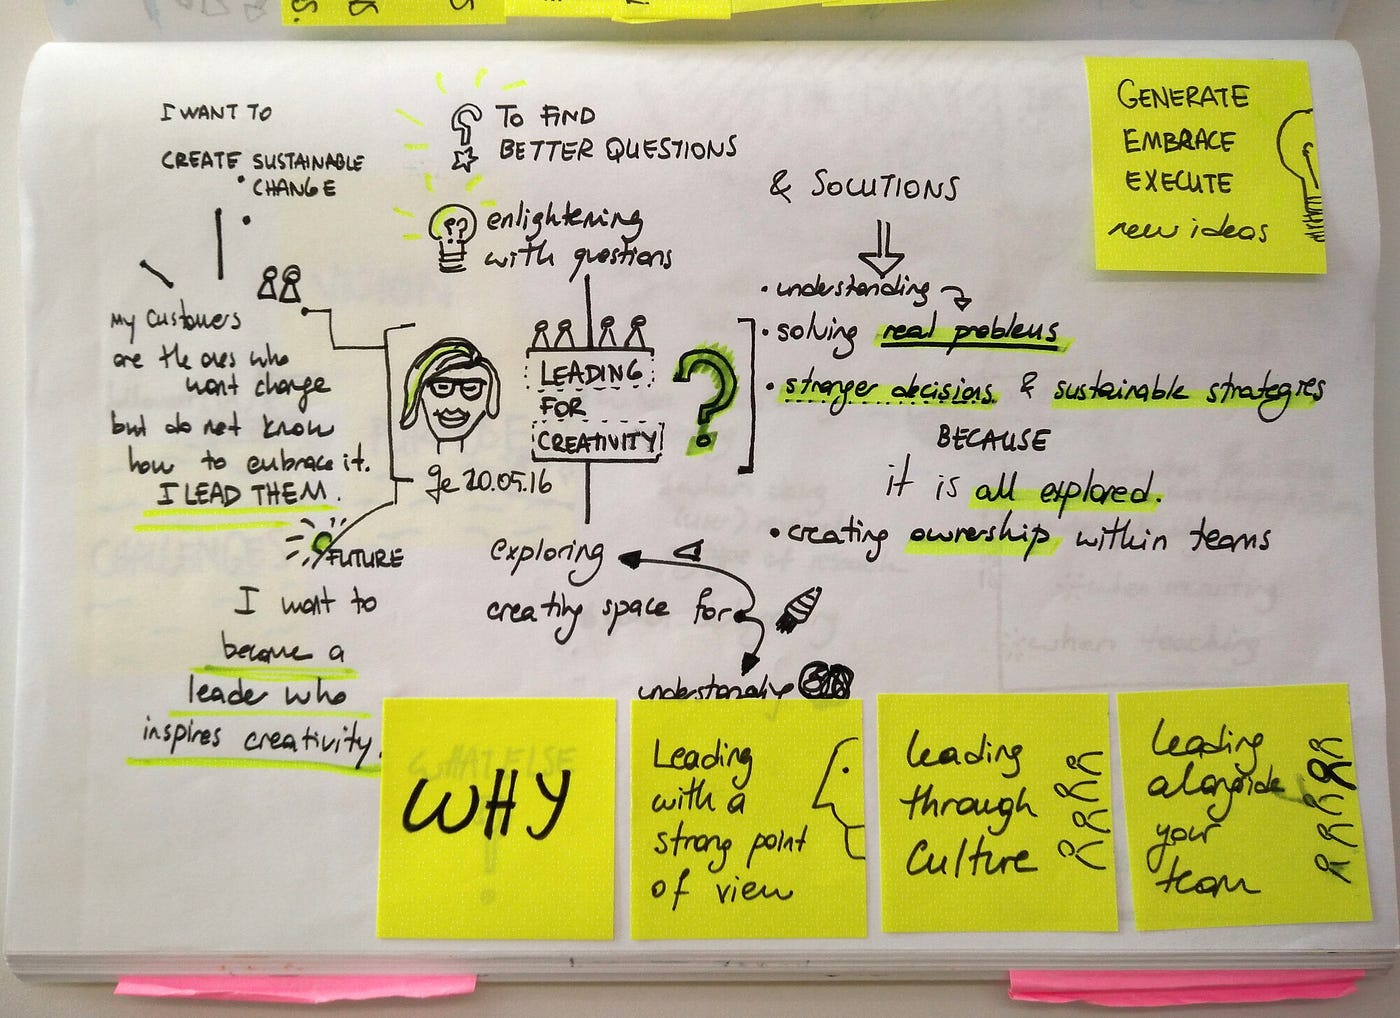 I WANT TO
CREATE SUSTAINABLE
CHANGE
My customers
are the ones who
want change
but do not know
how to embrace it.
I LEAD THEM.
FUTURE
I want to
become a
leader who
inspires creativity.
TO FIND
BETTER QUESTIONS
enlightening
with questions
LEADING
FOR
CREATIVITY
?
20.05.16
exploring
creating space for
understanding
& SOLUTIONS
• understanding
• solving real problems
• stronger decisions & sustainable strategies
BECAUSE
it is all explored.
• creating ownership within teams
GENERATE
EMBRACE
EXECUTE
new ideas
WHAT ELSE
WHY
Leading
with a
strong point
of view
Leading
through
Culture
Leading
alongside
your
team
CHALLENGES
when recruiting
when teaching